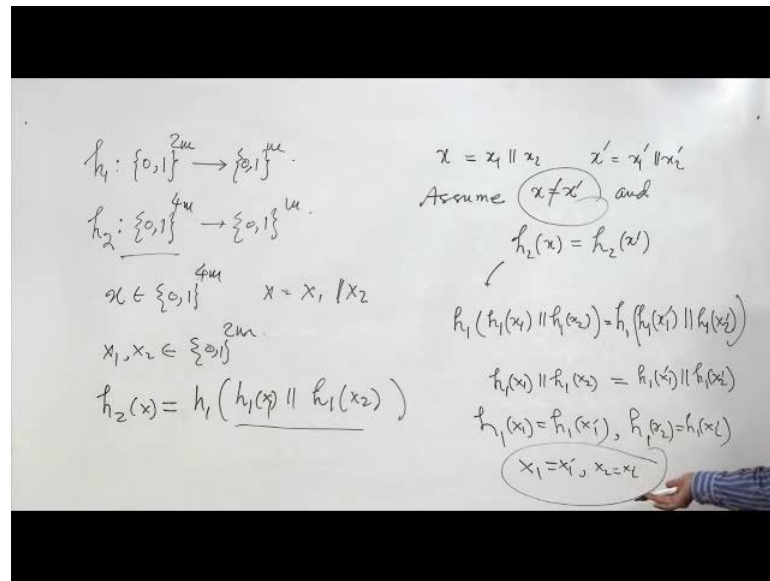 h₁ : {0,1}²ᵐ → {0,1}ᵐ.
h₂ : {0,1}⁴ᵐ → {0,1}ᵐ.
x ∈ {0,1}⁴ᵐ x = x₁ || x₂
x₁, x₂ ∈ {0,1}²ᵐ.
h₂(x) = h₁(h₁(x₁) || h₁(x₂))
x = x₁ || x₂ x' = x₁' || x₂'
Assume x ≠ x' and
h₂(x) = h₂(x')
h₁(h₁(x₁) || h₁(x₂)) = h₁(h₁(x₁') || h₁(x₂'))
h₁(x₁) || h₁(x₂) = h₁(x₁') || h₁(x₂')
h₁(x₁) = h₁(x₁'), h₁(x₂) = h₁(x₂')
x₁ = x₁', x₂ = x₂'